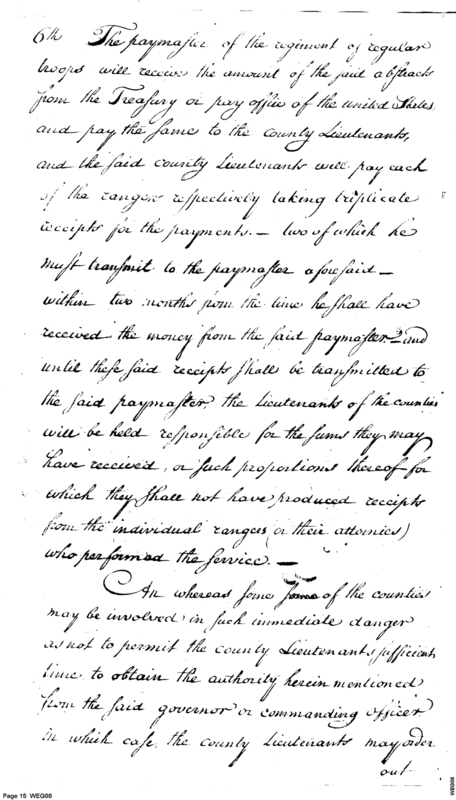 6th The paymaster of the regiment of regular
troops will receive the amount of the said abstracts
from the Treasury or pay office of the united States
and pay the same to the county Lieutenants,
and the said county Lieutenants will pay each
of the rangers respectively taking triplicate
receipts for the payments. — two of which he
must transmit to the paymaster aforesaid —
within two months from the time he shall have
received the money from the said paymaster and
until these said receipts shall be transmitted to
the said paymaster, the Lieutenants of the counties
will be held responsible for the sums they may
have received, or such proportions thereof for
which they shall not have produced receipts
from the individual rangers (or their attornies)
who performed the service. —
An whereas some some of the counties
may be involved in such immediate danger
as not to permit the county Lieutenants sufficient
time to obtain the authority herein mentioned
from the said governor or commanding officer
in which case, the county Lieutenants may order
out
Page 15 WEG08
WEG08